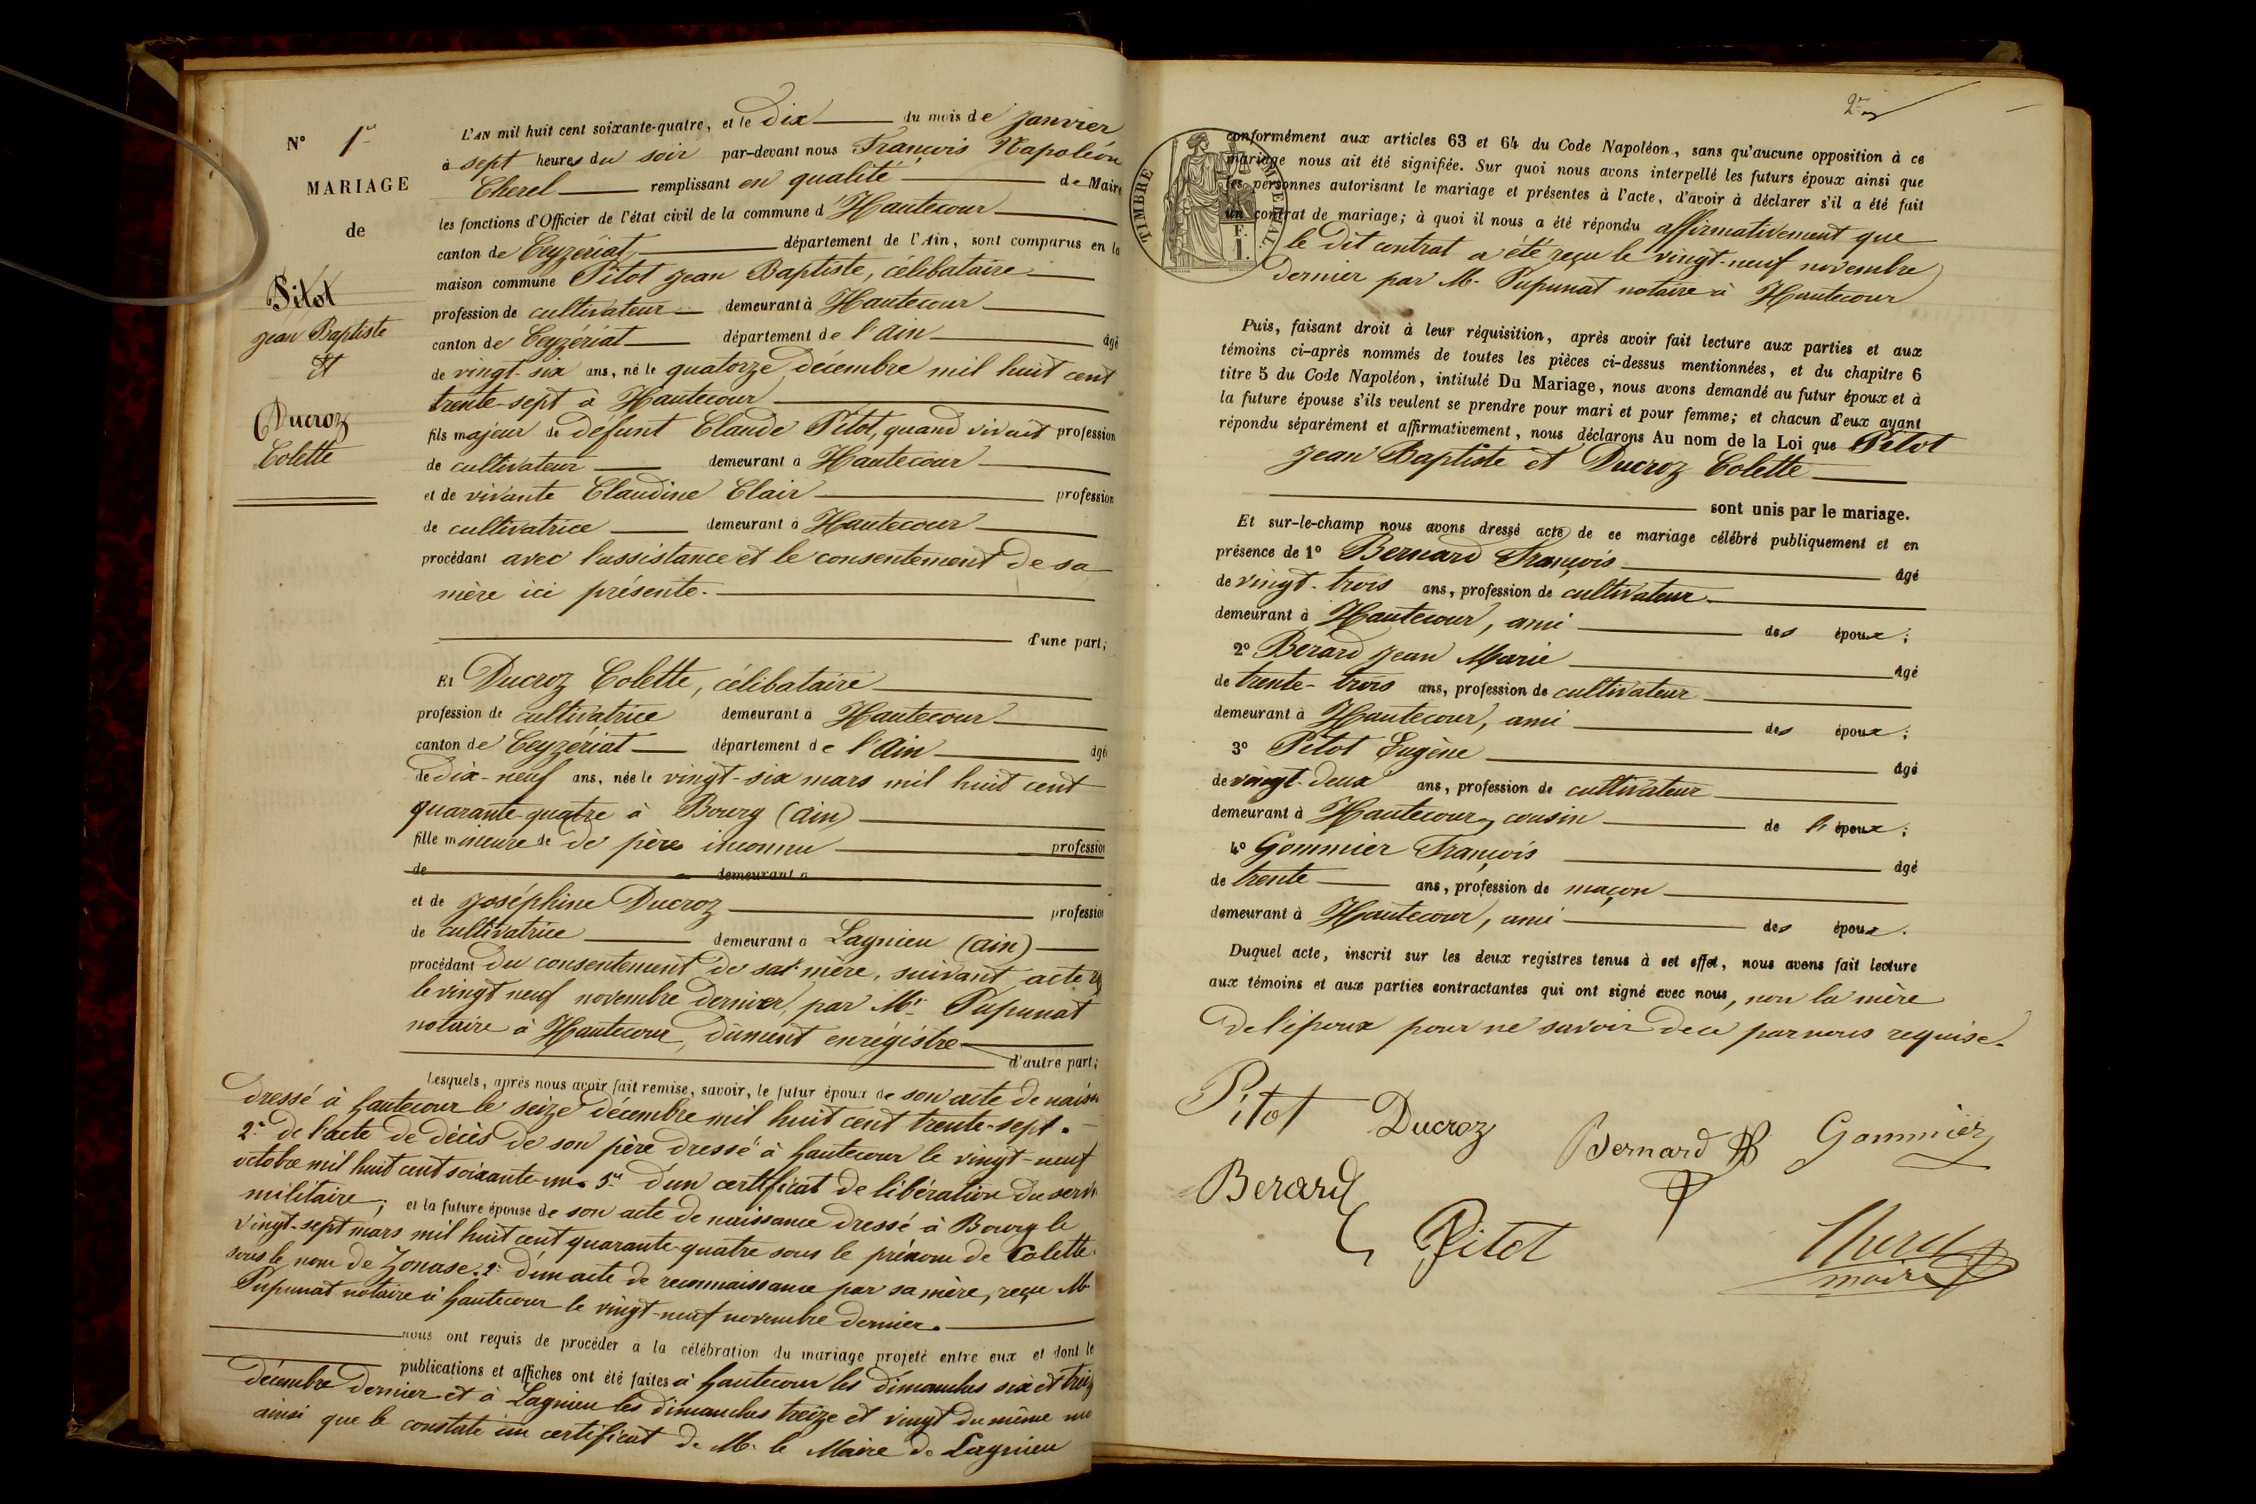 N° 1er
MARIAGE
de
Pitot
Jean Baptiste
Et
Ducroz
Colette
L'AN mil huit cent soixante-quatre, et le dix du mois de janvier
à sept heures du soir par-devant nous François Napoléon
Cherel remplissant en qualité de Maire
les fonctions d'Officier de l'état civil de la commune d'Hautecour
canton de Ceyzériat, département de l'Ain, sont comparus en la
maison commune Pitot Jean Baptiste, célibataire
profession de cultivateur demeurant à Hautecour
canton de Ceyzériat département de l'Ain âgé
de vingt-six ans, né le quatorze décembre mil huit cent
trente-sept à Hautecour
fils majeur de defunt Claude Pitot, quand vivait profession
de cultivateur demeurant à Hautecour
et de vivante Claudine Clair profession
de cultivatrice demeurant à Hautecour
procédant avec l'assistance et le consentement de sa
mère ici présente.
d'une part;
Et Ducroz Colette, célibataire
profession de cultivatrice demeurant à Hautecour
canton de Ceyzériat département de l'Ain âgé
de dix-neuf ans, née le vingt-six mars mil huit cent
quarante-quatre à Bourg (Ain)
fille mineure de de père inconnu profession
de demeurant à
et de Joséphine Ducroz profession
de cultivatrice demeurant à Lagnieu (Ain)
procédant du consentement de sa mère, suivant acte
le vingt neuf novembre dernier, par Mr Pupunat
notaire à Hautecour, dûment enrégistre
d'autre part;
Lesquels, après nous avoir fait remise, savoir, le futur époux de son acte de naiss
dressé à hautecour le seize décembre mil huit cent trente-sept.
2° de l'acte de décès de son père dressé à hautecour le vingt-neuf
octobre mil huit cent soixante-un. 3° d'un certificat de libération du servi
militaire; et la future épouse de son acte de naissance dressé à Bourg le
vingt-sept mars mil huit cent quarante-quatre sous le prénom de Colette
sous le nom de Zonase. 2° d'un acte de reconnaissance par sa mère, reçu M
Pupunat notaire à hautecour le vingt-neuf novembre dernier.
nous ont requis de procéder à la célébration du mariage projeté entre eux et dont le
publications et affiches ont été faites à hautecour les dimanches six et treiz
décembre dernier et à Lagnieu les dimanches treize et vingt du même mo
ainsi que le constate un certificat de M. le Maire de Lagnieu
TIMBRE IMPÉRIAL.
F.
1.
conformément aux articles 63 et 64 du Code Napoléon, sans qu'aucune opposition à ce
mariage nous ait été signifiée. Sur quoi nous avons interpellé les futurs époux ainsi que
les personnes autorisant le mariage et présentes à l'acte, d'avoir à déclarer s'il a été fait
un contrat de mariage; à quoi il nous a été répondu affirmativement que
le dit contrat a été reçu le vingt-neuf novembre
dernier par M. Pupunat notaire à Hautecour
Puis, faisant droit à leur réquisition, après avoir fait lecture aux parties et aux
témoins ci-après nommés de toutes les pièces ci-dessus mentionnées, et du chapitre 6
titre 5 du Code Napoléon, intitulé Du Mariage, nous avons demandé au futur époux et à
la future épouse s'ils veulent se prendre pour mari et pour femme; et chacun d'eux ayant
répondu séparément et affirmativement, nous déclarons Au nom de la Loi que Pitot
Jean Baptiste et Ducroz Colette
sont unis par le mariage.
Et sur-le-champ nous avons dressé acte de ce mariage célébré publiquement et en
présence de 1° Bernard François âgé
de vingt-trois ans, profession de cultivateur
demeurant à Hautecour, ami des époux;
2° Berard Jean Marie âgé
de trente-trois ans, profession de cultivateur
demeurant à Hautecour, ami des époux;
3° Pitot Eugène âgé
de vingt-deux ans, profession de cultivateur
demeurant à Hautecour, cousin de l'époux;
4° Gommier François âgé
de trente ans, profession de maçon
demeurant à Hautecour, ami des époux.
Duquel acte, inscrit sur les deux registres tenus à cet effet, nous avons fait lecture
aux témoins et aux parties contractantes qui ont signé avec nous, non la mère
de l'époux pour ne savoir de ce par nous requise.
Pitot Ducroz Bernard Gommier
Berard Pitot Cherel
maire